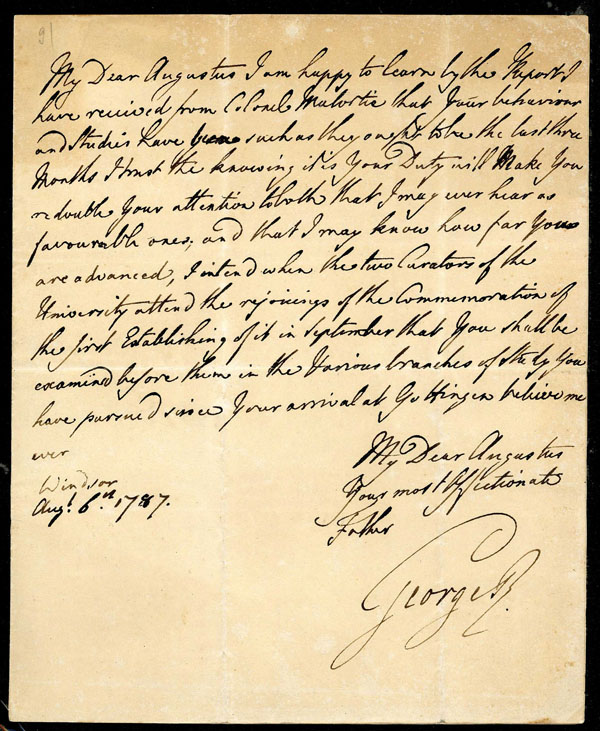 91
My Dear Augustus I am happy to learn by the Report I
have received from Colonel Malortie that Your behaviour
and Studies have been such as they ought to be the last three
Months I trust the knowing it is Your Duty will Make You
redouble Your attention to both that I may ever hear as
favourable ones; and that I may know how far You
are advanced, I intend when the two Curators of the
University attend the rejoicings of the Commemoration of
the first Establishing of it in September that You shall be
examind before them in the Various branches of Study You
have pursued since Your arrival at Gottingen believe me
ever
My Dear Augustus
Your most Affectionate
Father
George R.
Windsor
Augt. 6th. 1787.